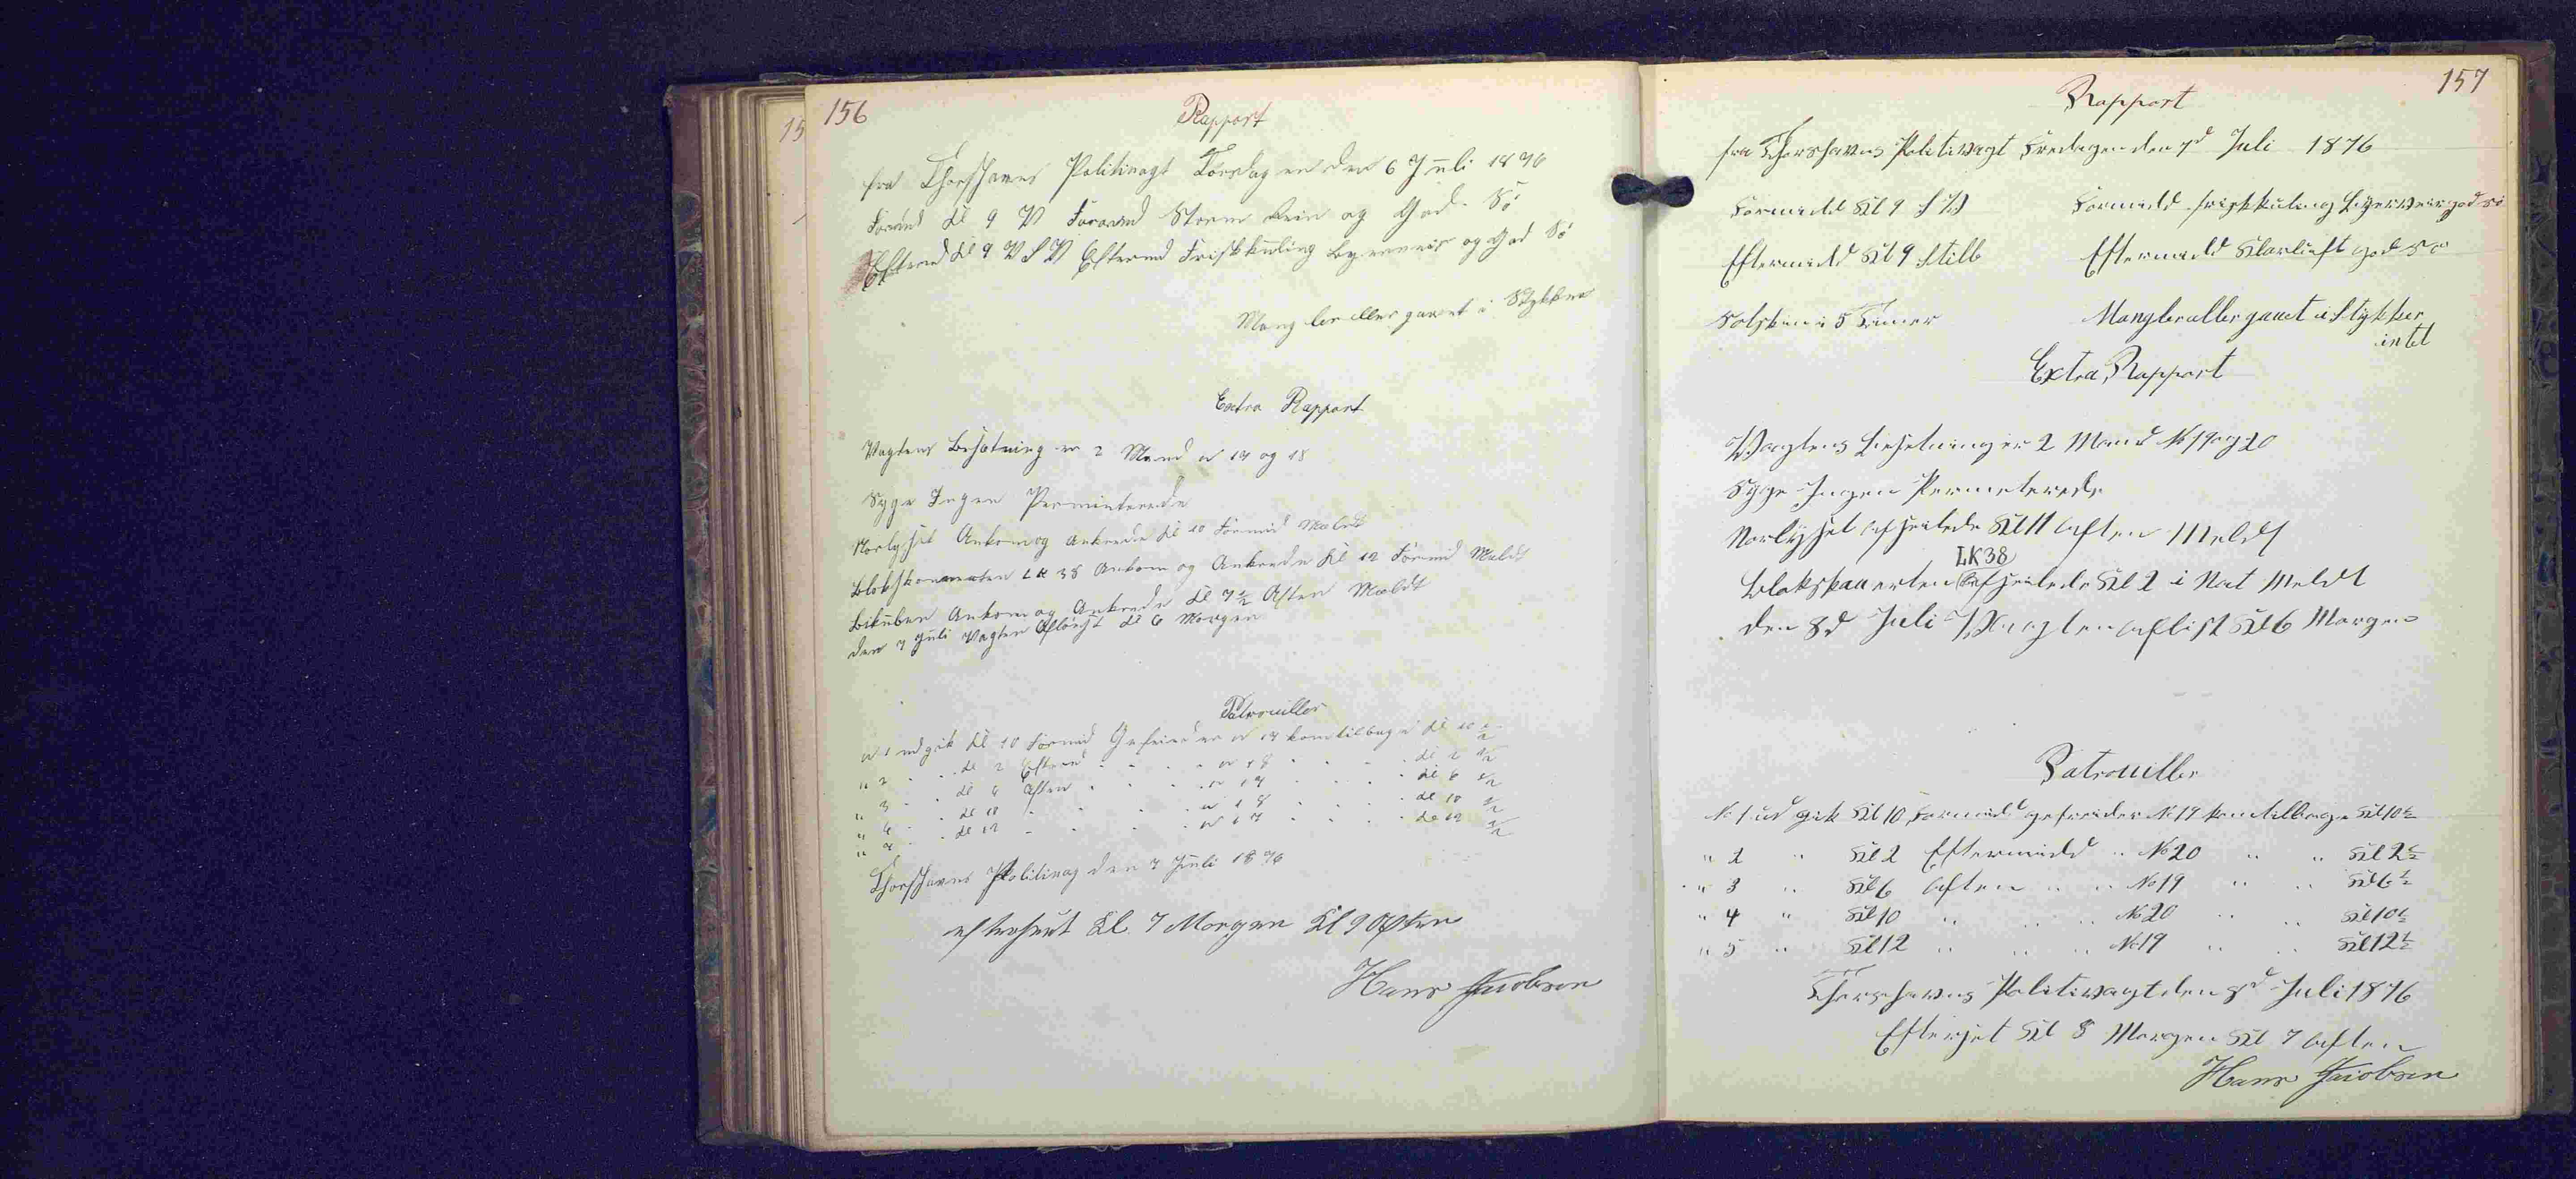 156
Rapport
fra Thorshavns Politivagt Torsdagen den 6 Juli 1876
Formd Kl 9 V Formd Storm Rein og God Sö
Eftermd Kl 9 V S V Eftermd Friskkuling Byeveir og God Sö
Mangler eller gaaet i Stykker
Extra Rapport
Vagtens Besætning er 2 Mand No 17 og 18
Syge Ingen Permenterede
Norlyset Ankom og ankrede Kl 10 Formid Meldt
Blokskonnerten LK 38 Ankom og Ankrede Kl 12 Formid Meldt
Bikuben Ankom og Ankrede Kl 7½ Aften Meldt
den 7 Juli Vagten Aflöszt Kl 6 Morgen
Patrouiller
No 1 udgik Kl 10 Formid Gefreider No 17 kom tilbage Kl 10 ½
" 2 " " Kl 2 Efterm " " " No 18 " " " Kl 2 ½
" 3 " " Kl 6 Aften " " " No 17 " " " Kl 6 ½
" 4 " " Kl 10 " " " No 18 " " " Kl 10 ½
" 5 " " Kl 12 " " " No 17 " " " Kl 12 ½
Thorshavns Politivag den 7 Juli 1876
efterseet Kl. 7 Morgen Kl 9 Aften
Hans Jacobsen
157
Rapport
fra Thorshavns Politivagt Fredagen den 7d Juli 1876
Formidd Kl 9 S V Formidd friskkuling Byeveir god sö
Eftermidd Kl 9 Still Eftermidd Klarluft god Sö
Solskin i 5 Timer Mangler eller gaaet i Stykker
intet
Extra Rapport
Vagtens Besetning er 2 Mand No 19 og 20
Syge Ingen Permeterede
Norlyset afseilede Kl 11 Aften Meldt
LK 38
Blokskonnerten afseilede Kl 2 i Nat Meldt
den 8d Juli Vagten aflist Kl 6 Morgen
Patrouiller
No 1 ud gik Kl 10 Formidd gefreider No 19 kom tilbage Kl 10½
" 2 " Kl 2 Eftermidd " No 20 " " Kl 2½
" 3 " Kl 6 Aften " " No 19 " " Kl 6½
" 4 " Kl 10 " " " No 20 " " Kl 10½
" 5 " Kl 12 " " " No 19 " " Kl 12½
Thorshavns Politivagt den 8d Juli 1876
Efterset Kl 8 Morgen Kl 7 Aften
Hans Jacobsen